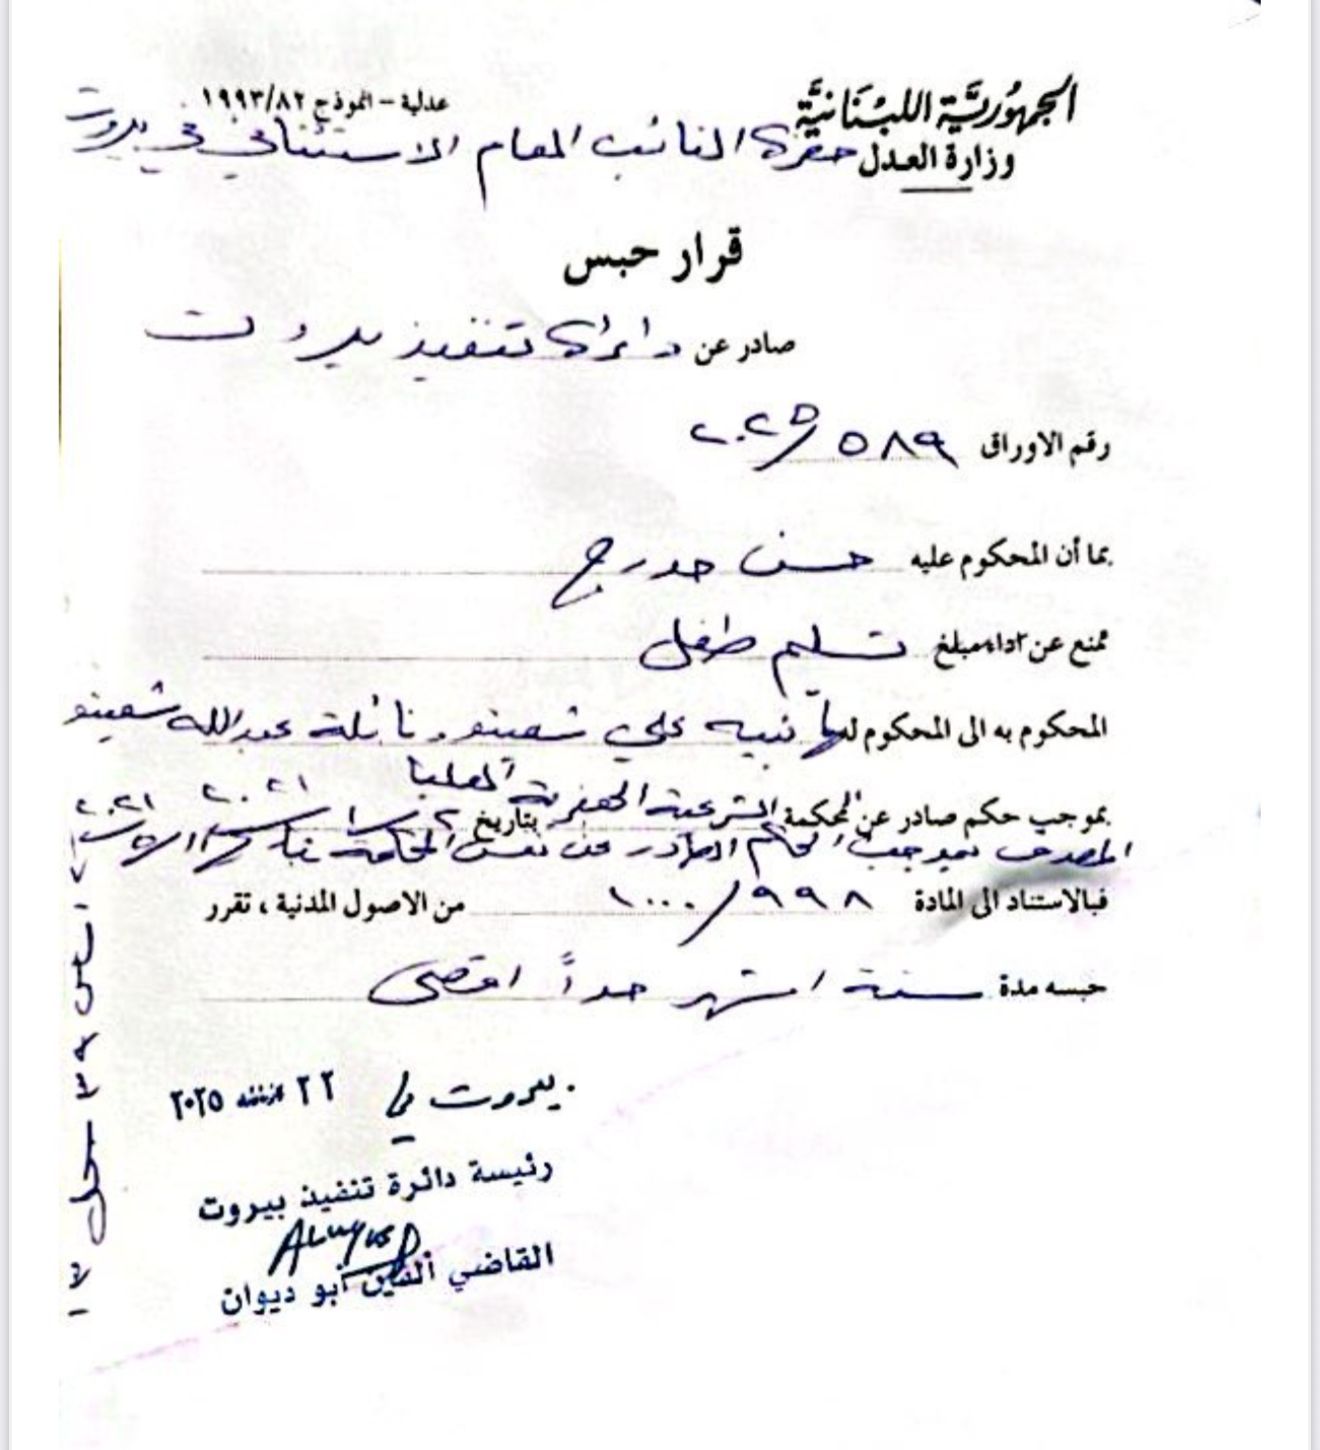 الجمهوريَّة اللبنَانيَّة
وزارة العدل
عدلية - النموذج ١٩٩٣/٨٢
حضرة النائب العام الاستئنافي في بيروت
قرار حبس
صادر عن دائرة تنفيذ بيروت
رقم الاوراق ٥٨٩/٢٠٢٥
بما أن المحكوم عليه حسن حدرج
ممتنع عن تسليم طفل
المحكوم به الى المحكوم لهما نبيه علي شعيتو ونائلة عبدالله شعيتو
بموجب حكم صادر عن المحكمة الشرعية الجعفرية العليا بتاريخ ٢٠٢١
المصدق بموجب الحكم الصادر عن نفس المحكمة ٢٠٢١
فبالاستناد الى المادة ٩٩٨/١٠٠٠ من الاصول المدنية ، تقرر
حبسه مدة ستة اشهر حداً اقصى
بيروت في ٢٢ ٢٠٢٥
رئيسة دائرة تنفيذ بيروت
القاضي ألفين أبو ديوان